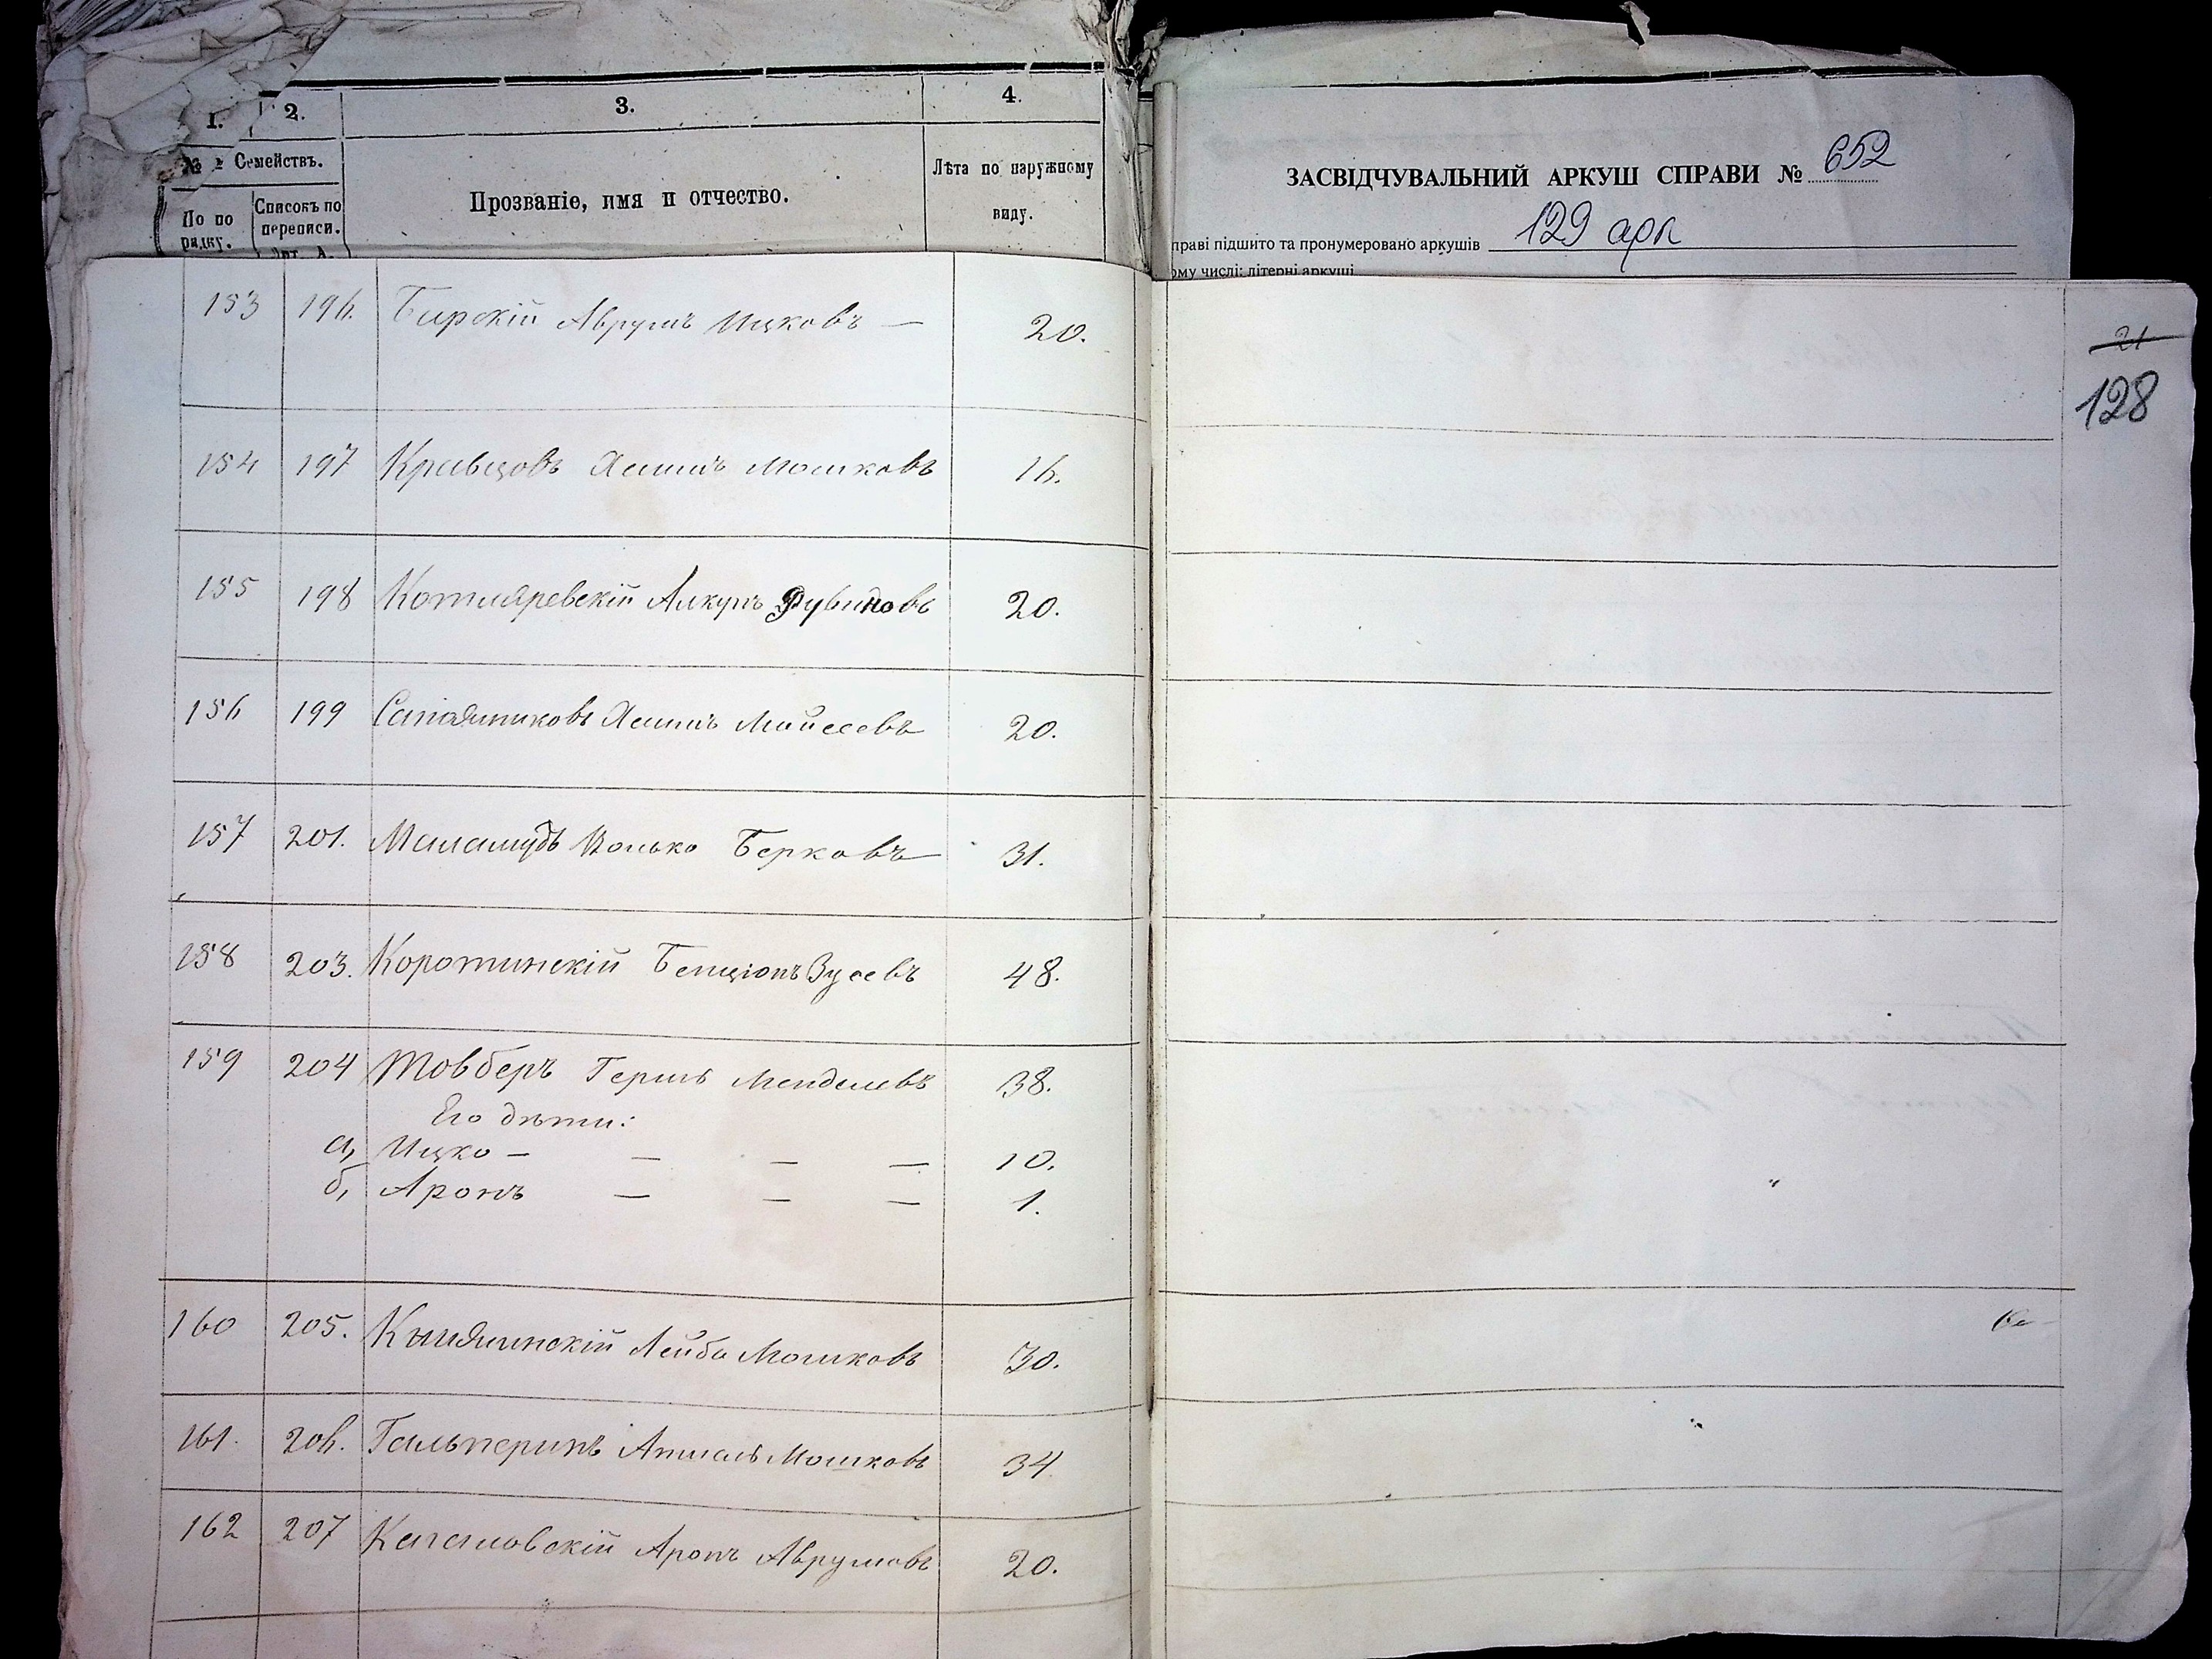 1. 2. 3. 4.
№ Семействъ.
По по рядку.
Списокъ по переписи.
Лит. А.
Прозваніе, имя и отчество.
Лѣта по наружному
виду.
ЗАСВІДЧУВАЛЬНИЙ АРКУШ СПРАВИ № 652
праві підшито та пронумеровано аркушів 129 арк
ому числі: літерні аркуші
21
128
153 196. Бирскій Аврумъ Ицковъ — 20.
154 197 Кравцовъ Хаимъ Мошковъ 16.
155 198 Котляревскій Рувиновъ 20.
156 199 Хаимъ Мойсеевъ 20.
157 201. Маламудъ Волько Берковъ 31.
158 203. Коротинскій Бенціонъ Зусевъ 48.
159 204 Товберъ Гершъ Менделевъ 38.
Его дѣти:
а, Ицко — — — — 10.
б, Аронъ — — — 1.
160 205. Лейба Мошковъ 30.
161. 206. Гальперинъ Мошковъ 34
162 207 Кагановскій Аронъ Аврумовъ 20.